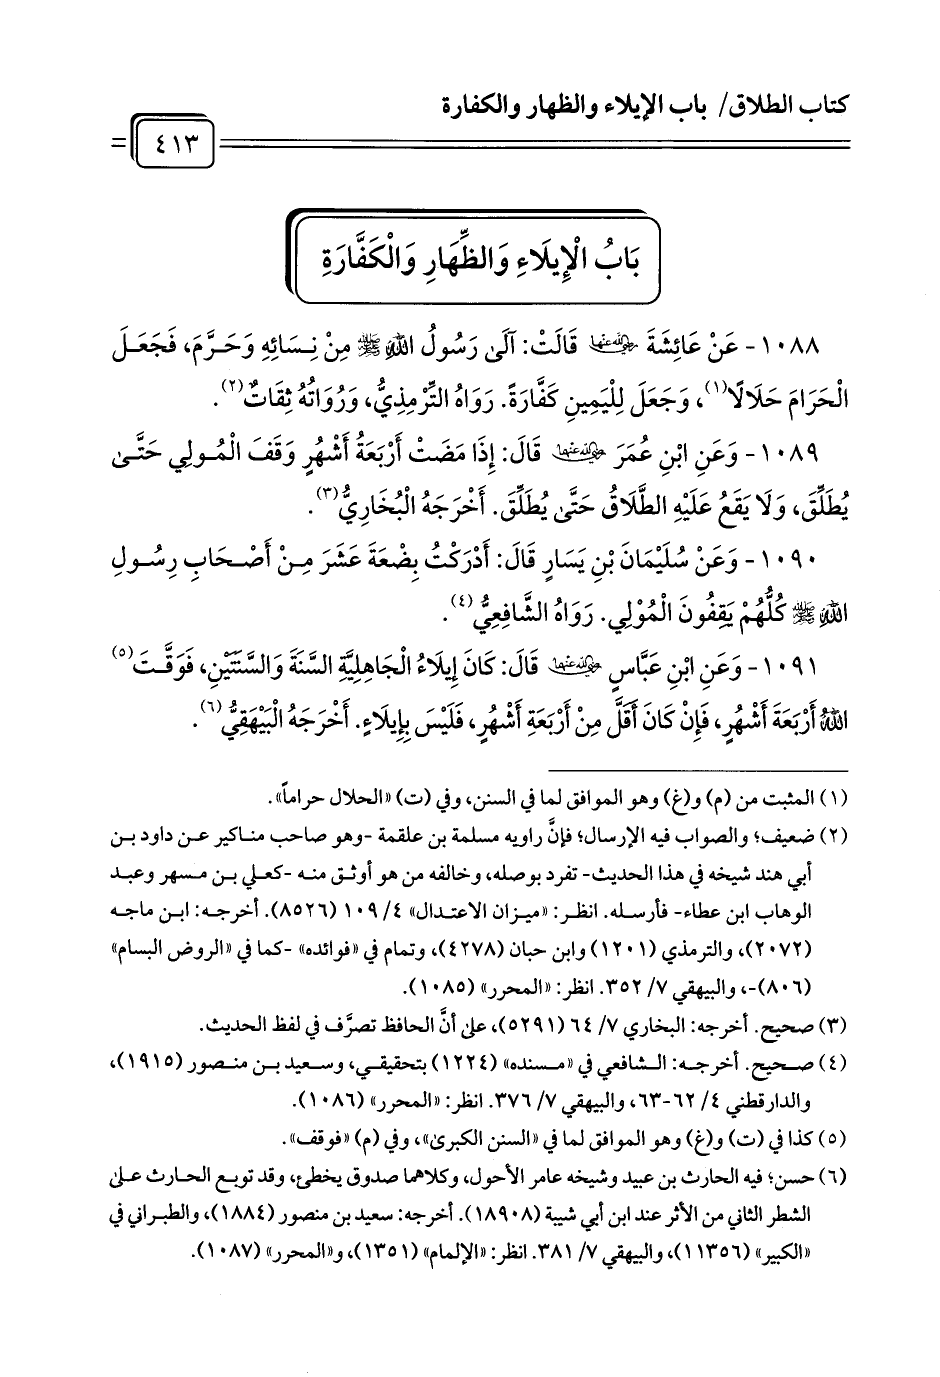 كتاب الطلاق/ باب الإيلاء والظهار والكفارة
٤١٣
بَابُ الْإِيلَاءِ وَالظِّهَارِ وَالْكَفَّارَةِ
١٠٨٨- عَنْ عَائِشَةَ رضي الله عنها قَالَتْ: آلَى رَسُولُ اللهِ ﷺ مِنْ نِسَائِهِ وَحَرَّمَ، فَجَعَلَ
الْحَرَامَ حَلَالًا(١)، وَجَعَلَ لِلْيَمِينِ كَفَّارَةً. رَوَاهُ التِّرْمِذِيُّ، وَرُوَاتُهُ ثِقَاتٌ(٢).
١٠٨٩- وَعَنِ ابْنِ عُمَرَ رضي الله عنهما قَالَ: إِذَا مَضَتْ أَرْبَعَةُ أَشْهُرٍ وَقَفَ الْمُولِي حَتَّى
يُطَلِّقَ، وَلَا يَقَعُ عَلَيْهِ الطَّلَاقُ حَتَّى يُطَلِّقَ. أَخْرَجَهُ الْبُخَارِيُّ(٣).
١٠٩٠- وَعَنْ سُلَيْمَانَ بْنِ يَسَارٍ قَالَ: أَدْرَكْتُ بِضْعَةَ عَشَرَ مِنْ أَصْحَابِ رِسُولِ
اللهِ ﷺ كُلُّهُمْ يَقِفُونَ الْمُوْلِي. رَوَاهُ الشَّافِعِيُّ(٤).
١٠٩١- وَعَنِ ابْنِ عَبَّاسٍ رضي الله عنهما قَالَ: كَانَ إِيلَاءُ الْجَاهِلِيَّةِ السَّنَةَ وَالسَّنَتَيْنِ، فَوَقَّتَ(٥)
اللهُ أَرْبَعَةَ أَشْهُرٍ، فَإِنْ كَانَ أَقَلَّ مِنْ أَرْبَعَةِ أَشْهُرٍ، فَلَيْسَ بِإِيلَاءٍ. أَخْرَجَهُ الْبَيْهَقِيُّ(٦).
(١) المثبت من (م) و(غ) وهو الموافق لما في السنن، وفي (ت) «الحلال حراماً».
(٢) ضعيف؛ والصواب فيه الإرسال؛ فإنَّ راويه مسلمة بن علقمة -وهو صاحب مناكير عن داود بن
أبي هند شيخه في هذا الحديث- تفرد بوصله، وخالفه من هو أوثق منه -كعلي بن مسهر وعبد
الوهاب ابن عطاء- فأرسله. انظر: «ميزان الاعتدال» ٤/ ١٠٩ (٨٥٢٦). أخرجه: ابن ماجه
(٢٠٧٢)، والترمذي (١٢٠١) وابن حبان (٤٢٧٨)، وتمام في «فوائده» -كما في «الروض البسام»
(٨٠٦)-، والبيهقي ٧/ ٣٥٢. انظر: «المحرر» (١٠٨٥).
(٣) صحيح. أخرجه: البخاري ٧/ ٦٤ (٥٢٩١)، على أنَّ الحافظ تصرَّف في لفظ الحديث.
(٤) صحيح. أخرجه: الشافعي في «مسنده» (١٢٢٤) بتحقيقي، وسعيد بن منصور (١٩١٥)،
والدارقطني ٤/ ٦٢-٦٣، والبيهقي ٧/ ٣٧٦. انظر: «المحرر» (١٠٨٦).
(٥) كذا في (ت) و(غ) وهو الموافق لما في «السنن الكبرى»، وفي (م) «فوقف».
(٦) حسن؛ فيه الحارث بن عبيد وشيخه عامر الأحول، وكلاهما صدوق يخطئ، وقد توبع الحارث على
الشطر الثاني من الأثر عند ابن أبي شيبة (١٨٩٠٨). أخرجه: سعيد بن منصور (١٨٨٤)، والطبراني في
«الكبير» (١١٣٥٦)، والبيهقي ٧/ ٣٨١. انظر: «الإلمام» (١٣٥١)، و«المحرر» (١٠٨٧).